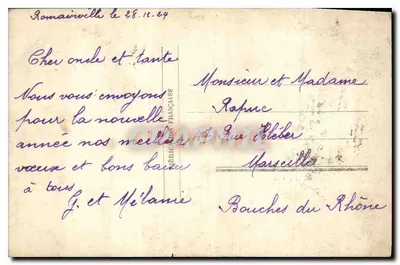 Romainville le 28.12.24
Cher oncle et tante
Nous vous envoyons
pour la nouvelle
année nos meilleurs
vœux et bons baisers
à tous
G. et Mélanie
FABRICATION FRANÇAISE
Monsieur et Madame
Rapuc
47 Rue Kléber
Marseille
Bouches du Rhône